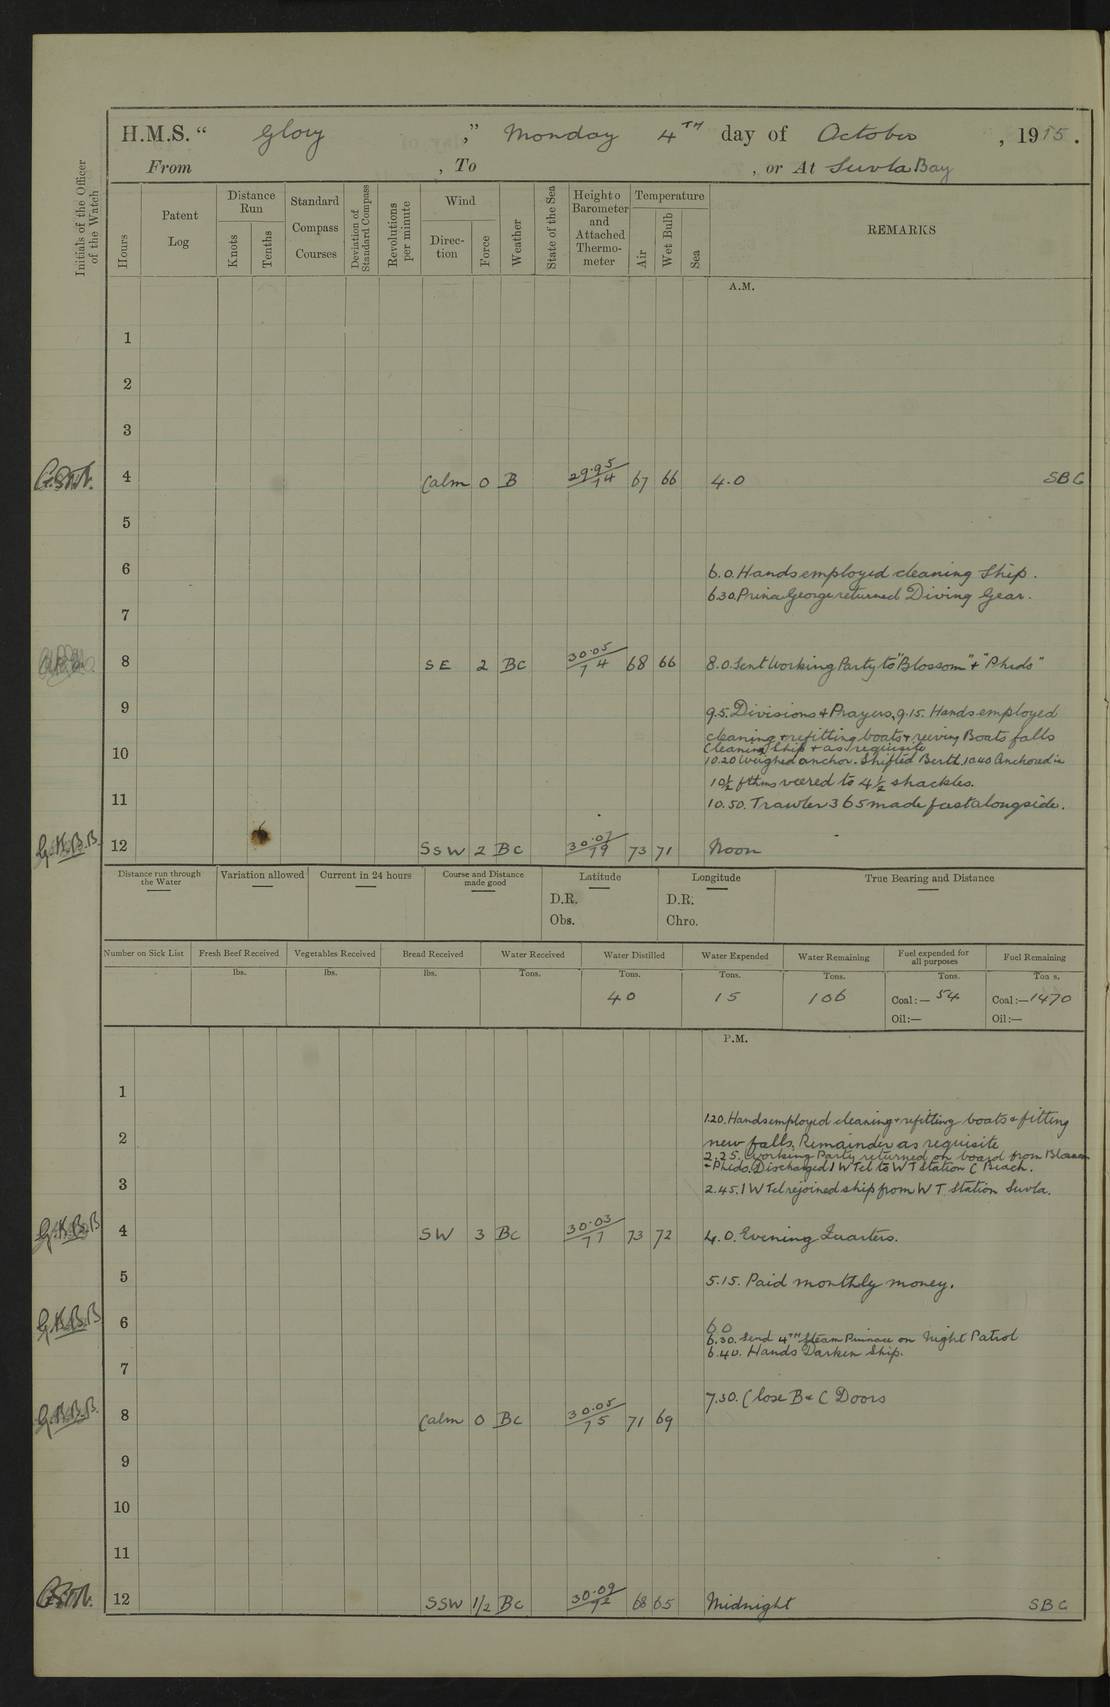 H.M.S. “ Glory ,” Monday 4TH day of October , 1915 .
From , To , or At Suvla Bay
Initials of the Officer of the Watch
Hours
Patent Log
Distance Run
Knots
Tenths
Standard Compass Courses
Deviation of Standard Compass
Revolutions per minute
Wind
Direc-tion
Force
Weather
State of the Sea
Height o Barometer and Attached Thermo-meter
Temperature
Air
Wet Bulb
Sea
REMARKS
A.M.
1
2
3
4 Calm 0 B 29.95/74 67 66 4.0 SBC
5
6 6.0. Hands employed cleaning Ship.
6.30. Prince George returned Diving Gear.
7
8 SE 2 BC 30.05/74 68 66 8.0. Sent Working Party to "Blossom" + "Phedo"
9 9.5. Divisions + Prayers, 9.15. Hands employed
cleaning + refitting boats + reeving Boats falls
Cleaning Ship + as requisite
10 10.20 Weighed anchor. Shifted Berth. 10.40 Anchored in
10½ fthms veered to 4½ shackles.
11 10.50. Trawler 365 made fast alongside.
G.K.B.B. 12 SSW 2 BC 30.07/79 73 71 Noon
Distance run through the Water
Variation allowed
Current in 24 hours
Course and Distance made good
Latitude
D.R.
Obs.
Longitude
D.R.
Chro.
True Bearing and Distance
Number on Sick List
Fresh Beef Received
lbs.
Vegetables Received
lbs.
Bread Received
lbs.
Water Received
Tons.
Water Distilled
Tons.
40
Water Expended
Tons.
15
Water Remaining
Tons.
106
Fuel expended for all purposes
Tons.
Coal:— 54
Oil:—
Fuel Remaining
Ton s.
Coal:—1470
Oil:—
P.M.
1
1.20. Hands employed cleaning + refitting boats & fitting
2 new falls. Remainder as requisite
2.25. Working Party returned on board from Blossom
+ Phedo. Discharged 1 W Tel to W T Station C Beach.
3 2.45. 1 W Tel rejoined ship from W T Station Suvla.
G.K.B.B 4 SW 3 BC 30.03/77 73 72 4.0. Evening Quarters.
5 5.15. Paid monthly money.
G.K.B.B 6 6.0
6.30. Send 4TH Steam Pinnace on Night Patrol
6.40. Hands Darken Ship.
7
7.30. Close B & C Doors
G.K.B.B. 8 Calm 0 BC 30.05/75 71 69
9
10
11
12 SSW 1/2 BC 30.09/72 68 65 Midnight SBC